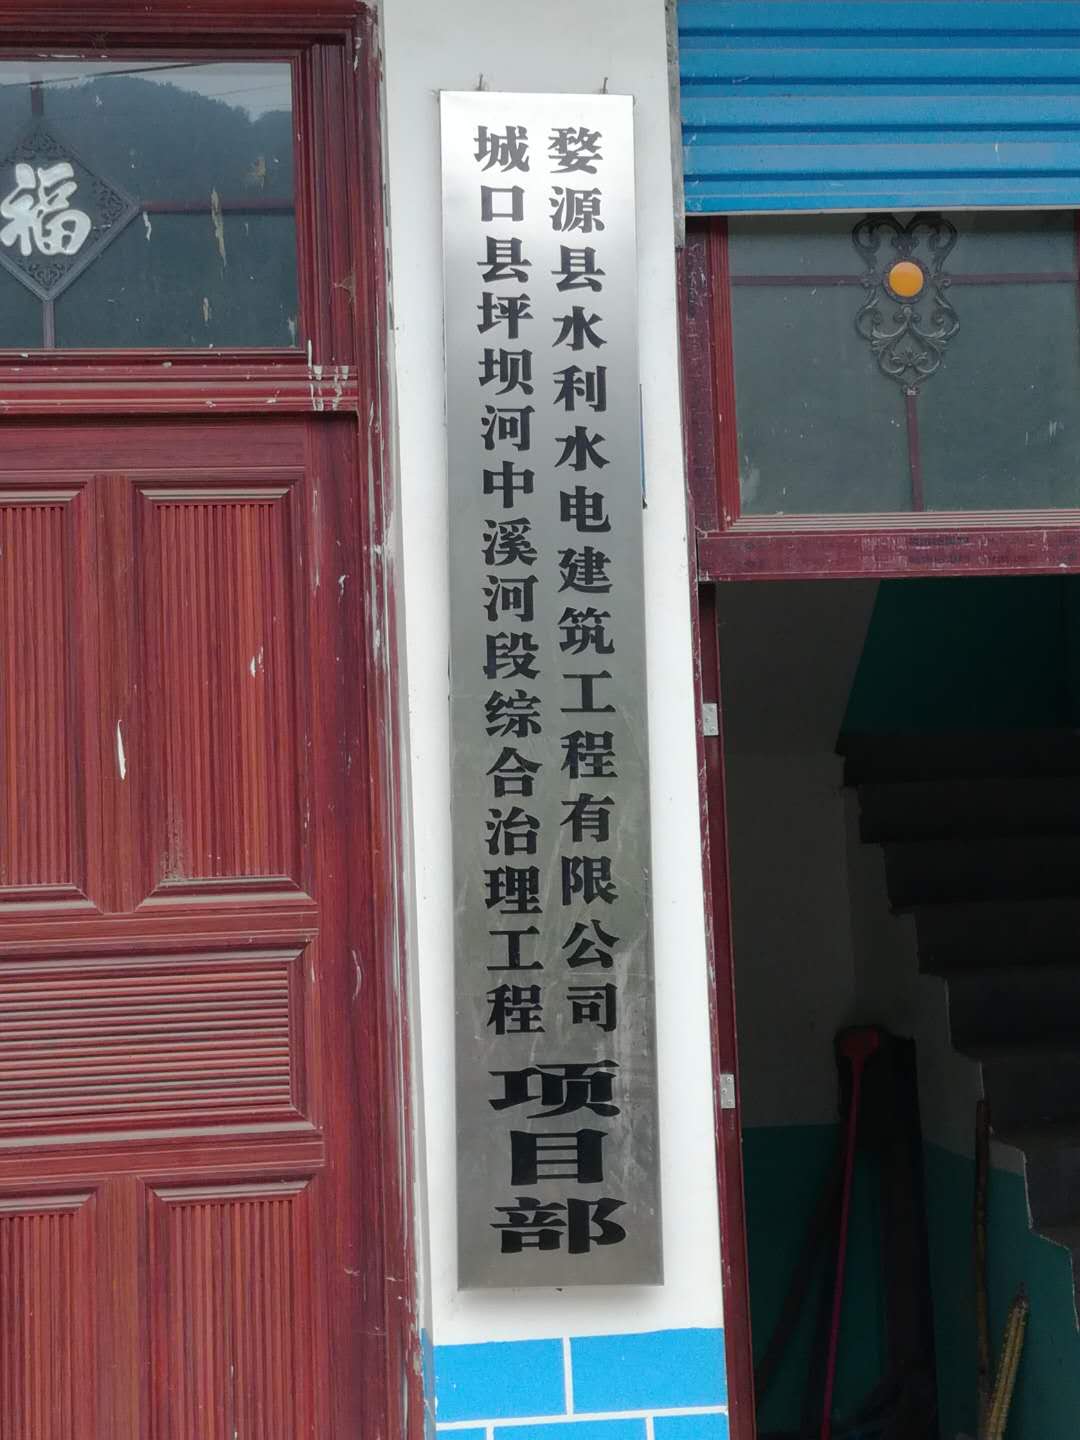 婺源县水利水电建筑工程有限公司
城口县坪坝河中溪河段综合治理工程
项目部
福